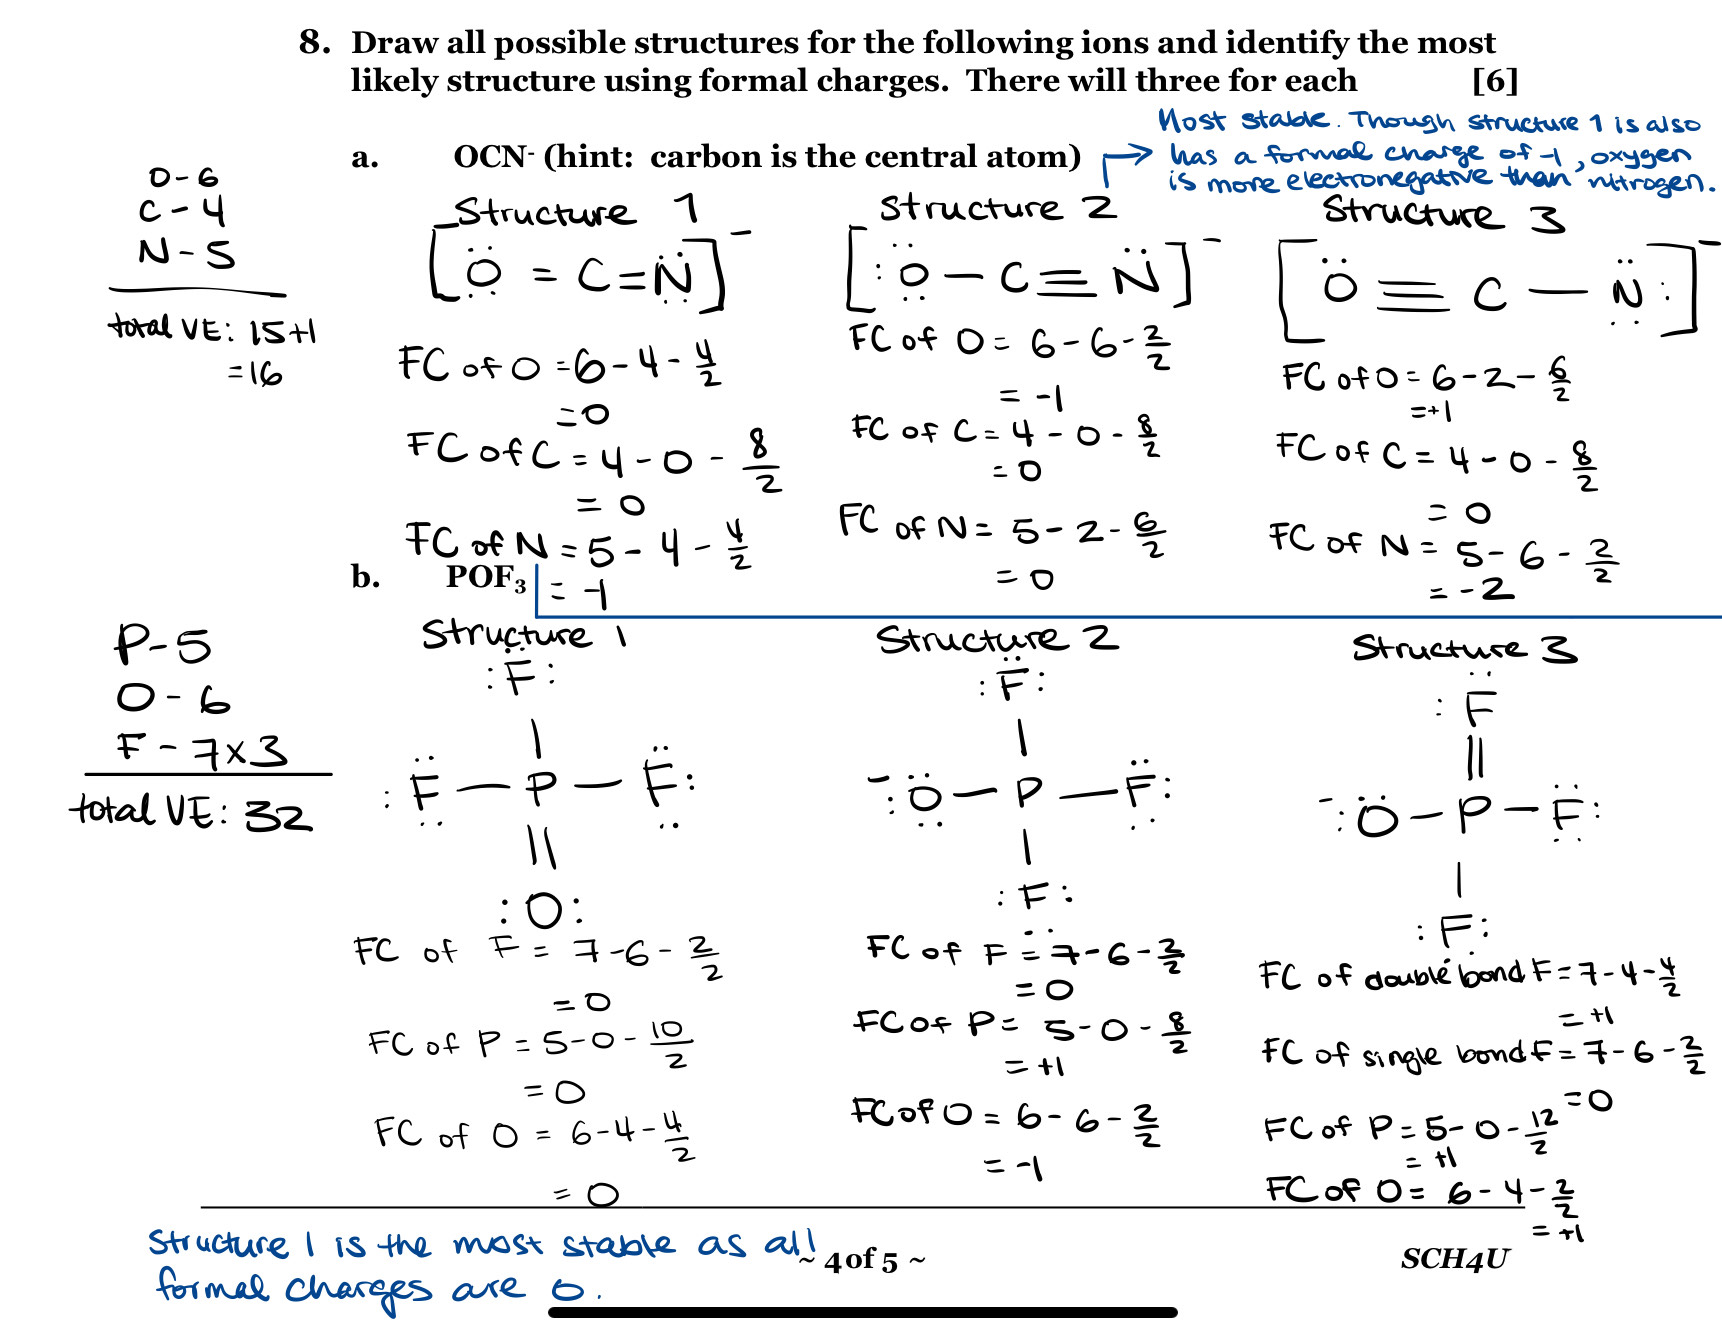 8. Draw all possible structures for the following ions and identify the most
likely structure using formal charges. There will three for each [6]
Most stable. Though structure 1 is also
has a formal charge of -1, oxygen
is more electronegative than nitrogen.
a. OCN- (hint: carbon is the central atom)
O - 6
C - 4
N - 5
total VE: 15+1
= 16
Structure 1
[Ö = C = N̈]-
FC of O = 6 - 4 - 4/2
= 0
FC of C = 4 - 0 - 8/2
= 0
FC of N = 5 - 4 - 4/2
= -1
Structure 2
[:Ö - C ≡ N̈]-
FC of O = 6 - 6 - 2/2
= -1
FC of C = 4 - 0 - 8/2
= 0
FC of N = 5 - 2 - 6/2
= 0
Structure 3
[Ö ≡ C - N̈:]-
FC of O = 6 - 2 - 6/2
= +1
FC of C = 4 - 0 - 8/2
= 0
FC of N = 5 - 6 - 2/2
= -2
b. POF3
P - 5
O - 6
F - 7 x 3
total VE: 32
Structure 1
:F̈:
|
:F̈ - P - F̈:
||
:O:
FC of F = 7 - 6 - 2/2
= 0
FC of P = 5 - 0 - 10/2
= 0
FC of O = 6 - 4 - 4/2
= 0
Structure 2
:F̈:
|
-:Ö - P - F̈:
|
:F:
FC of F = 7 - 6 - 2/2
= 0
FC of P = 5 - 0 - 8/2
= +1
FC of O = 6 - 6 - 2/2
= -1
Structure 3
:F̈
||
-:Ö - P - F̈:
|
:F:
FC of double bond F = 7 - 4 - 4/2
= +1
FC of single bond F = 7 - 6 - 2/2
= 0
FC of P = 5 - 0 - 12/2
= +1
FC of O = 6 - 4 - 2/2
= +1
Structure 1 is the most stable as all
formal charges are 0.
~ 4 of 5 ~
SCH4U